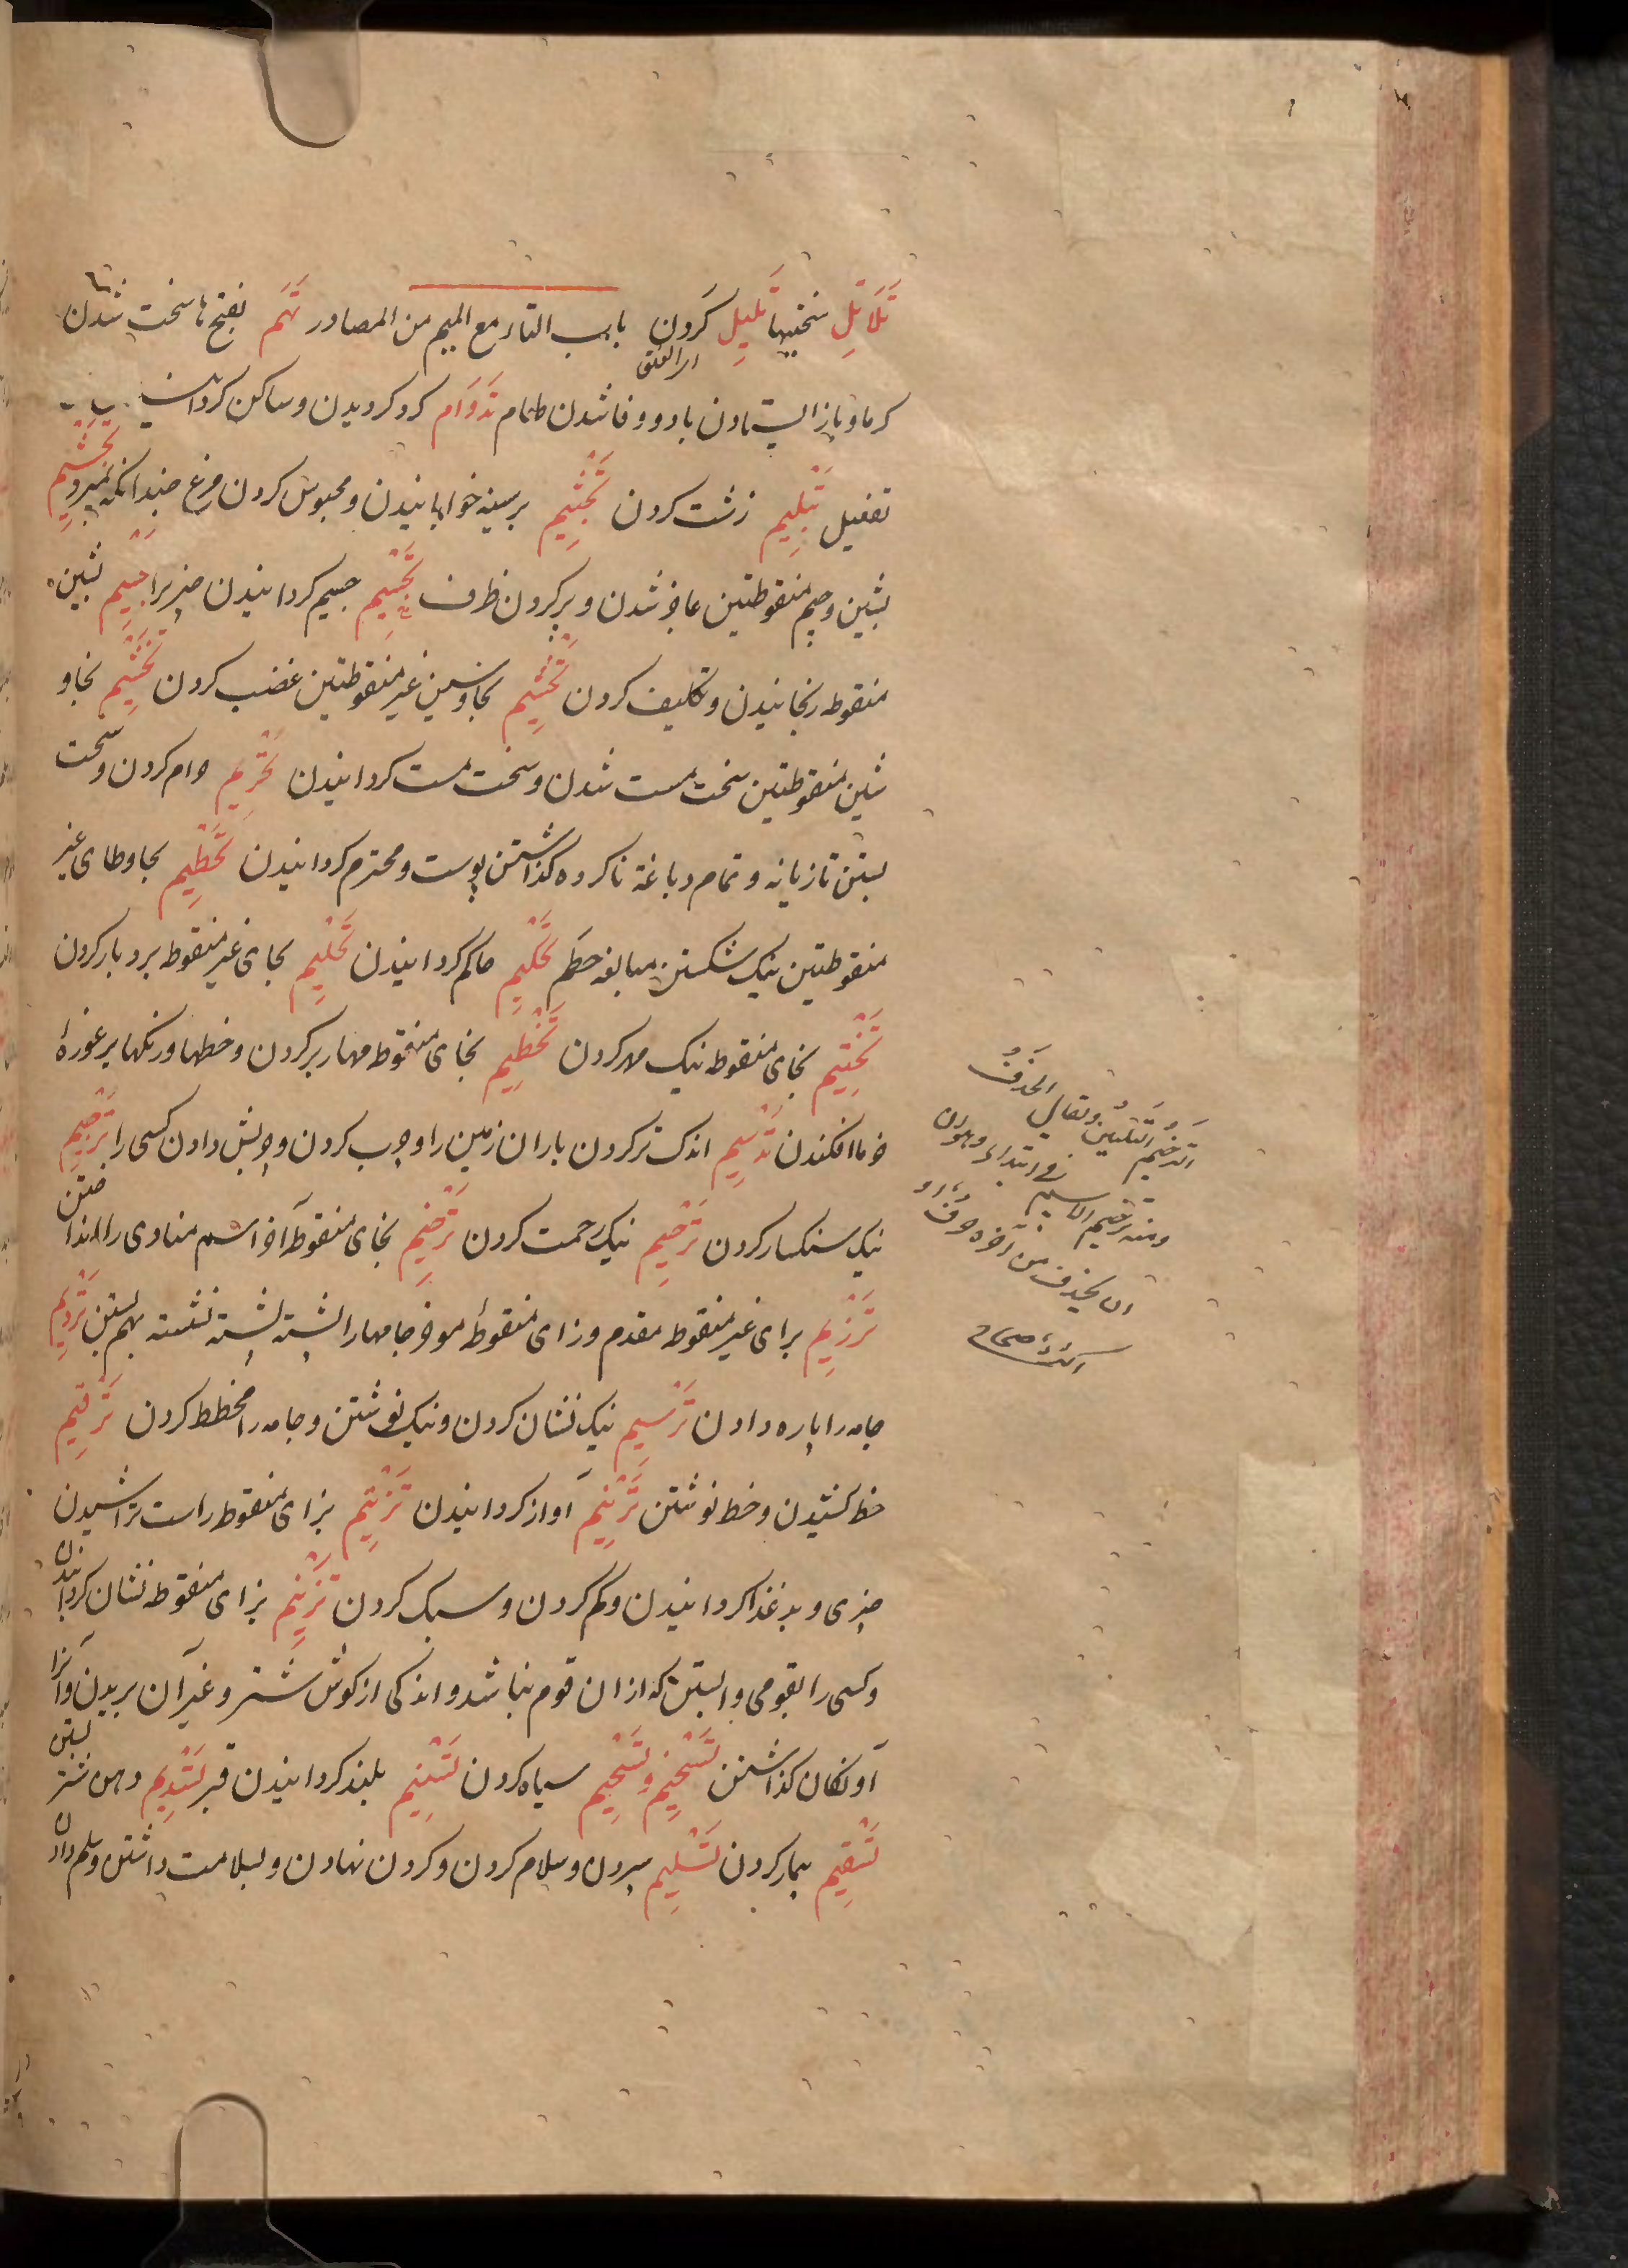 تَلَاتِل سختیها تَلیِل کردن باب التاء مع المیم من المصادر تَهَم بفتح ها سخت شدن
کرما و باز ایستادن باد و فاشدن طعام تَدْوَام کرد کردیدن و ساکن کردانیدن
تفعیل تَبْلِیم زشت کردن تَجْثِیم بر سینه خوابانیدن و محبوس کردن مرغ چندانکه بمیرد
بشین و جیم منقوطتین عاجز شدن و پر کردن ظرف تَجْسِیم جسیم کردانیدن چیزیرا تَجْشِیم بشین
منقوطه رنجانیدن و تکلیف کردن تَحْشِیم بحا و سین غیر منقوطتین غضب کردن تَخْشِیم بخا و
شین منقوطتین سخت مست شدن و سخت مست کردانیدن تَحْرِیم حرام کردن و سخت
بستن تازیانه و تمام دباغة ناکرده کذاشتن پوست و محترم کردانیدن تَحْطِیم بحا و طای غیر
منقوطتین نیک شکستن مبالغه حطم تَحْکِیم حاکم کردانیدن تَحْلِیم بحای غیر منقوط بردبار کردن
تَخْتِیم بخای منقوطه نیک مهر کردن تَخْطِیم بخای منقوط مهار بر کردن و خطها و رنکها بر غورهٔ
خرما افکندن تَدْسِیم اندک تر کردن باران زمین را و چرب کردن و چربش دادن کسی را تَرْجِیم
نیک سنکسار کردن تَرْحِیم نیک رحمت کردن تَرْخِیم بخای منقوط آخر اسم منادی را انداختن
تَرْزِیم برای غیر منقوط مقدم و زای منقوط موخر جامها را پشته پشته نشسته بهم بستن تَرْدِیم
جامه را پاره دادن تَرْسِیم نیک نشان کردن و نیک نوشتن و جامه را مخطط کردن تَرْقِیم
خط کشیدن و خط نوشتن تَرْنِیم آواز کردانیدن تَزْلِیم بزای منقوط راست تراشیدن
چیزی و بد غذا کردانیدن و کم کردن و سبک کردن تَزْنِیم بزای منقوطه نشان کردانیدن
و کسی را بقومی وابستن که ازان قوم نباشد و اندکی از کوش شتر و غیر آن بریدن و آنرا
آونکان کذاشتن تَسْخِیم و تَسْحِیم سیاه کردن تَسْنِیم بلند کردانیدن قبر تَسْدِیم دهن شتر بستن
تَسْقِیم بیمار کردن تَسْلِیم سپردن و سلام کردن و کردن نهادن و بسلامت داشتن و سلم دادن
الترخیم التلیین و یقال الحذف
و منه ترخیم الاسم فی النداء و هو ان
ان یحذف من آخره حرف او
اکثر صحاح